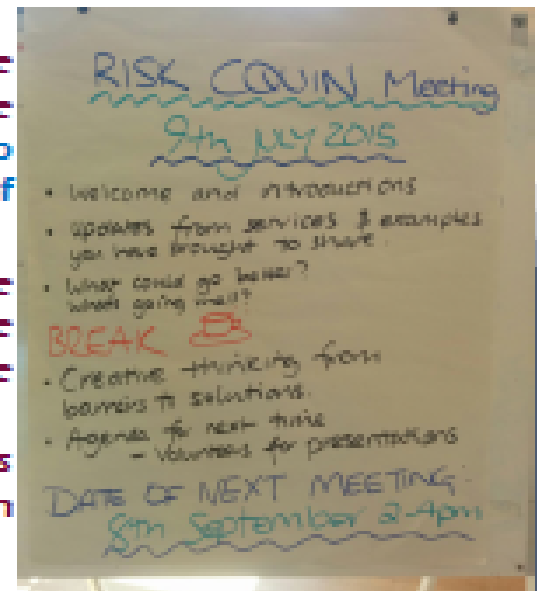 RISK CQUIN Meeting
9th July 2015
• Welcome and introductions
• updates from services & examples
you have brought to share.
• What could go better?
what's going well?
BREAK
• Creative thinking from
barriers to solutions.
• Agenda for next time
- Volunteers for presentations
DATE OF NEXT MEETING:
8th September 2-4pm